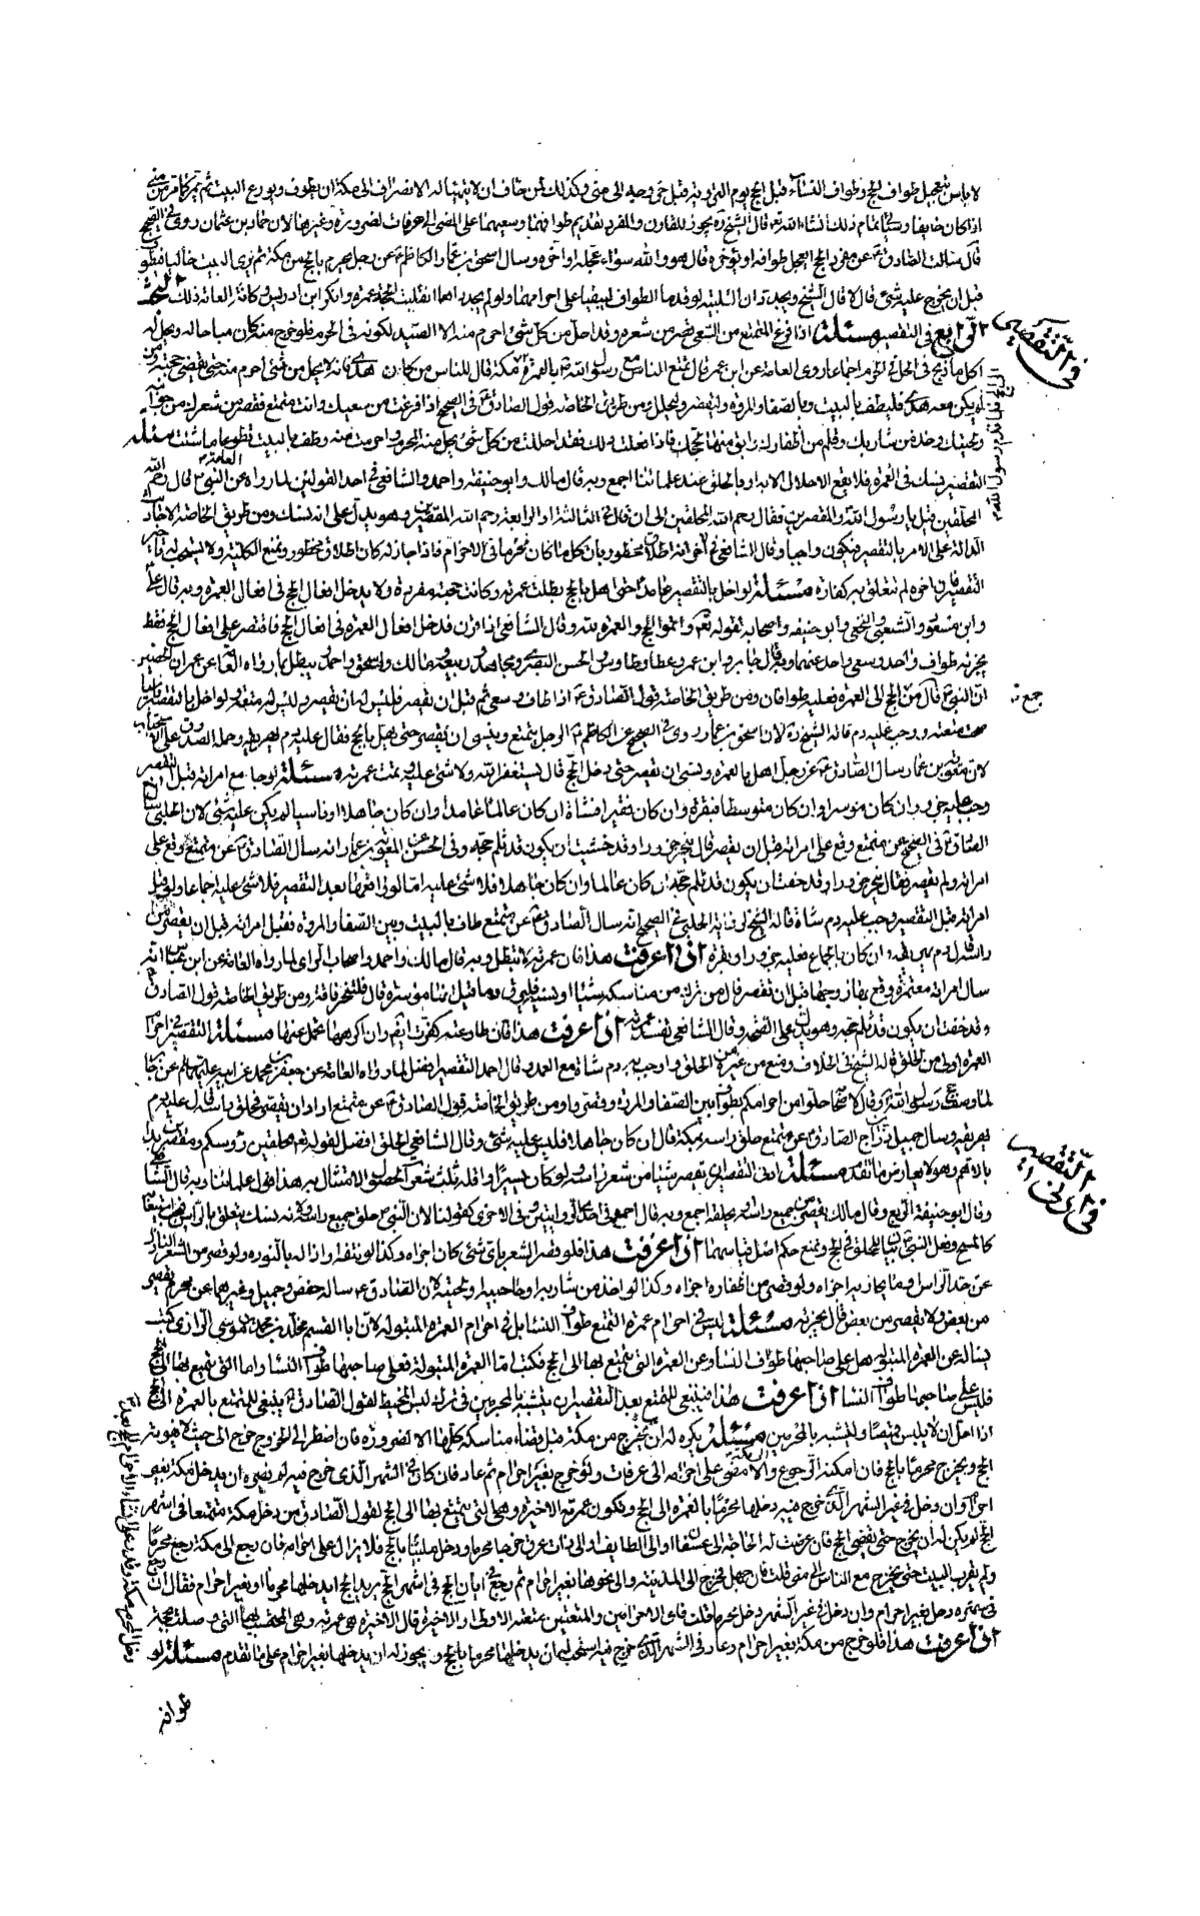 لا باس بتعجيل طواف الحج وطواف النساء قبل الحج يوم التروية قبل خروجه الى منى وكذلك لمن خاف ان لا يتهيأ له الانصراف الى مكة ان يطوف ويودع البيت ثم يمر كما هو من منى
اذا كان خايفا وسيأتي تمام ذلك انشاء الله تعالى قال الشيخ ره يجوز للقارن والمفرد تقديم طوافهما وسعيهما على المضي الى عرفات لضرورة وغيرها لان حماد بن عثمان روى في الصحيح
قال سالت الصادق ع عن مفرد الحج ايعجل طوافه او يؤخره قال هو والله سواء عجله او اخره وسال اسحق بن عمار الكاظم ع عن رجل يحرم بالحج من مكة ثم يرى البيت خاليا فيطوف
قبل ان يخرج عليه شئ قال لا قال الشيخ ويجددان التلبية لو قدما الطواف ليبقيا على احرامهما ولو لم يجددا انقلبت الحجة عمرة وانكر ابن ادريس وكافة العامة ذلك البحث
الرابع في التقصير مسئلة اذا فرغ المتمتع من السعي قصر من شعره وقد احل من كل شئ احرم منه الا الصيد لكونه في الحرم فلو خرج منه كان مباحا له ويحل له
اكل ما ذبح في الحل في الحرم اجماعا روى العامة عن ابن عمر قال تمتع الناس مع رسول الله ص بالعمرة الى الحج فلما قدم رسول الله ص مكة قال للناس من كان معه هدي فانه لا يحل من شئ احرم منه حتى يقضي حجته ومن
لم يكن معه هدي فليطف بالبيت وبالصفا والمروة وليقصر وليحلل ومن طريق الخاصة قول الصادق ع في الصحيح اذا فرغت من سعيك وانت متمتع فقصر من شعرك من جوانبه
ولحيتك وخذ من شاربك وقلم من اظفارك وابق منها لحجك فاذا فعلت ذلك فقد احللت من كل شئ يحل منه المحرم واحرمت منه وطف بالبيت تطوعا ما شئت مسئلة
التقصير نسك في العمرة فلا يقع الاحلال الا به او بالحلق عند علمائنا اجمع وبه قال مالك وابو حنيفة واحمد والشافعي في احد القولين لما رواه العامة عن النبي ص قال رحم الله
المحلقين قيل يا رسول الله والمقصرين فقال رحم الله المحلقين الى ان قال في الثالثة او الرابعة رحم الله المقصرين وهو يدل على انه نسك ومن طريق الخاصة الاخبار
الدالة على الامر بالتقصير فيكون واجبا وقال الشافعي في الاخر انه اطلاق محظور بان كل ما كان محرما في الاحرام فاذا جاز له كان اطلاق محظور ونمنع الكلية ولا يستحب له تاخير
التقصير فان اخره لم تتعلق به كفارة مسئلة لو اخل بالتقصير عامدا حتى اهل بالحج بطلت عمرته وكانت حجته مفردة ولا يدخل افعال الحج في افعال العمرة وبه قال علي ع
وابن مسعود والشعبي والنخعي وابو حنيفة واصحابه لقوله تعالى واتموا الحج والعمرة لله وقال الشافعي اذا قرن تدخل افعال العمرة في افعال الحج فاقتصر على افعال الحج فقط
يجزئه طواف واحد وسعي واحد عنهما وبه قال جابر وابن عمر وعطا وطاوس والحسن البصري ومجاهد وربيعة ومالك واسحق واحمد ويبطل بما رواه العامة عن عمران بن حصين
ان النبي ص قال من جمع الحج الى العمرة فعليه طوافان ومن طريق الخاصة قول الصادق ع اذا طاف وسعى ثم قبل ان يقصر فليس له ان يقصر وليس له متعة ولو اخل بالتقصير ناسيا
صحت متعته ووجب عليه دم قاله الشيخ ره لان اسحق بن عمار روى في الصحيح عن الكاظم ع الرجل يتمتع وينسى ان يقصر حتى يهل بالحج فقال عليه دم يهريقه وحمله الصدوق على الاستحباب
لان معوية بن عمار سال الصادق ع عن رجل اهل بالعمرة ونسي ان يقصر حتى دخل الحج قال يستغفر الله ولا شئ عليه وتمت عمرته مسئلة لو جامع امراته قبل التقصير
وجب عليه جزور ان كان موسرا وان كان متوسطا فبقرة وان كان فقيرا فشاة ان كان عالما عامدا وان كان جاهلا او ناسيا لم يكن عليه شئ لان الحلبي سال
الصادق ع في الصحيح عن متمتع وقع على امراته قبل ان يقصر قال ينحر جزورا وقد خشيت ان يكون قد ثلم حجه وفي الحسن عن معوية بن عمار انه سال الصادق ع عن متمتع وقع على
امراته ولم يقصر فقال ينحر جزورا وقد خفت ان يكون قد ثلم حجه ان كان عالما وان كان جاهلا فلا شئ عليه اما لو واقعها بعد التقصير فلا شئ عليه اجماعا ولو قبل
امراته قبل التقصير وجب عليه دم شاة قاله الشيخ لرواية الحلبي في الصحيح انه سال الصادق ع عن متمتع طاف بالبيت وبين الصفا والمروة فقبل امراته قبل ان يقصر من
راسه قال دم يهريقه وان كان الجماع فعليه جزور او بقرة اذا عرفت هذا فان عمرته لا تبطل وبه قال مالك واحمد واصحاب الراي لما رواه العامة عن ابن عباس انه
سال امراته معتمرة وقع بها زوجها قبل ان تقصر قال من ترك من مناسكه شيئا او نسيه فليهرق دما قيل انها موسرة قال فلتنحر ناقة ومن طريق الخاصة قول الصادق ع
وقد خفت ان يكون قد ثلم حجه وهو يدل على الصحة وقال الشافعي تفسد عمرته اذا عرفت هذا فان طاوعته كفرت ايضا وان اكرهها تحمل عنها مسئلة التقصير في احرام
العمرة اولى من الحلق قاله الشيخ في الخلاف ومنع من غيره من الحلق واوجب به دم شاة مع العمد وقال احمد التقصير افضل لما رواه العامة عن جعفر بن محمد عن ابيه عليهما السلام عن جابر
لما وصف حج رسول الله ص وقال لاصحابه حلوا من احرامكم بطواف بين الصفا والمروة وقصروا ومن طريق الخاصة قول الصادق ع عن متمتع اراد ان يقصر فحلق راسه قال عليه دم
يهريقه وسال جميل بن دراج الصادق ع عن متمتع حلق راسه بمكة قال ان كان جاهلا فليس عليه شئ وقال الشافعي الحلق افضل لقوله تعالى محلقين رؤسكم ومقصرين
مسئلة ادنى التقصير ان يقصر شيئا من شعر راسه ولو كان يسيرا واقله ثلث شعرات لحصول الامتثال به هذا قول علمائنا وبه قال الشافعي
وقال ابو حنيفة الربع وقال مالك يقصر من جميع راسه او يحلقه اجمع وبه قال احمد في احدى الروايتين وفي الاخرى كقولنا لان النبي ص حلق جميع راسه ولانه نسك يتعلق بالراس فوجب استيعابه
كالمسح وفعل النبي ص بيان للحلق في الحج ونمنع حكم اصل قياسهما اذا عرفت هذا فلو قصر الشعر باي شئ كان اجزاه وكذا لو نتفه وازاله بالنورة ولو قصر من الشعر النازل
عن حد الراس وما يحاذيه اجزاه ولو قصر من اظفاره اجزاه وكذا لو اخذ من شاربه او حاجبيه او لحيته لان الصادق ع ساله حفص وجميل وغيرهما عن محرم يقصر
من بعض ولا يقصر من بعض قال يجزئه مسئلة ليس في احرام عمرة التمتع طواف النساء بل في احرام العمرة المبتولة لان ابا القسم مخلد بن موسى الرازي كتب
يساله عن العمرة المبتولة هل على صاحبها طواف النساء وعن العمرة التي يتمتع بها الى الحج فكتب اما العمرة المبتولة فعلى صاحبها طواف النساء واما التي يتمتع بها الى الحج
فليس على صاحبها طواف النساء اذا عرفت هذا فينبغي للمتمتع بعد التقصير ان يتشبه بالمحرمين في ترك لبس المخيط لقول الصادق ع ينبغي للمتمتع بالعمرة الى الحج
اذا احل ان لا يلبس قميصا وليتشبه بالمحرمين مسئلة يكره له ان يخرج من مكة قبل قضاء مناسكه كلها الا لضرورة فان اضطر الى الخروج خرج الى حيث لا يفوته
الحج ويخرج محرما بالحج فان امكنه الرجوع الى مكة والا مضى على احرامه الى عرفات ولو خرج بغير احرام ثم عاد فان كان في الشهر الذي خرج فيه لم يضره ان يدخل مكة بغير
احرام وان دخل في غير الشهر الذي خرج فيه دخلها محرما بالعمرة الى الحج وتكون عمرته الاخيرة وهي التي يتمتع بها الى الحج لقول الصادق ع من دخل مكة متمتعا في اشهر
الحج لم يكن له ان يخرج حتى يقضي الحج فان عرضت له الحاجة الى عسفان او الى الطايف او الى ذات عرق خرج محرما ودخل ملبيا بالحج فلا يزال على احرامه فان رجع الى مكة رجع محرما
ولم يقرب البيت حتى يخرج مع الناس الى منى قلت فان جهل فخرج الى المدينة والى نحوها بغير احرام ثم رجع في ابان الحج في اشهر الحج يريد الحج ايدخلها محرما او بغير احرام فقال ان رجع
في شهره دخل بغير احرام وان دخل في غير الشهر دخل محرما قلت فاي الاحرامين والمتعتين متعته الاولى او الاخيرة قال الاخيرة هي عمرته وهي المحتبس بها التي وصلت بحجته
اذا عرفت هذا فلو خرج من مكة بغير احرام وعاد في الشهر الذي خرج فيه استحب له ان يدخلها محرما بالحج ويجوز له ان يدخلها بغير احرام على ما تقدم مسئلة لو
طوافه
في التقصير
جمع
في التقصير